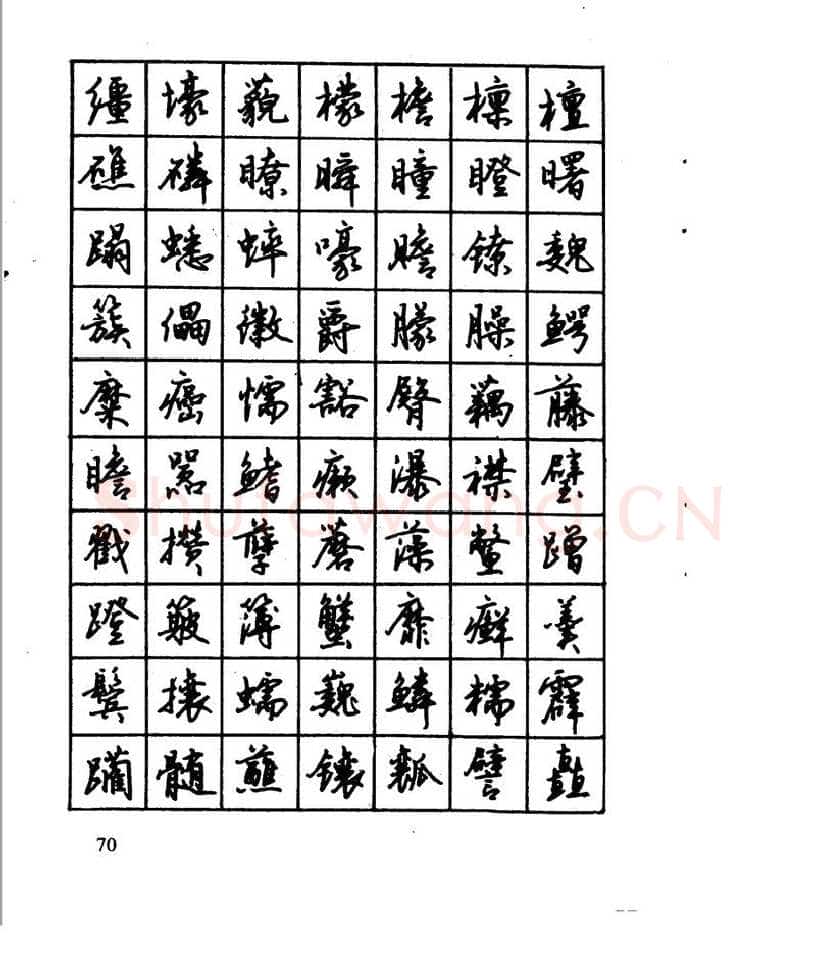 缰壕藐檬檐檩檀
礁磷瞭瞬瞳瞪曙
蹋蟋蟀嚎赡镣魏
簇儡徽爵朦臊鳄
糜癌懦豁臀藕藤
瞻嚣鳍癞瀑襟璧
戳攒孽蘑藻鳖蹭
蹬簸簿蟹靡癣羹
鬓攘蠕巍鳞糯霹
躏髓蘸镶瓤譬矗
70
Shufawang.CN